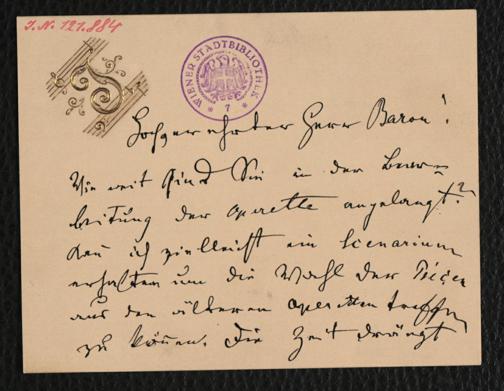 I.N. 121.884
WIENER STADTBIBLIOTHEK
* 7 *
Hochgeehrter Herr Baron!
Wie weit sind Sie in der Bear=
beitung der Operette angelangt?
Kan ich vielleicht ein Scenarium
erhalten um die Wahl der Piecen
aus den älteren Operetten treffen
zu können. Die Zeit drängt